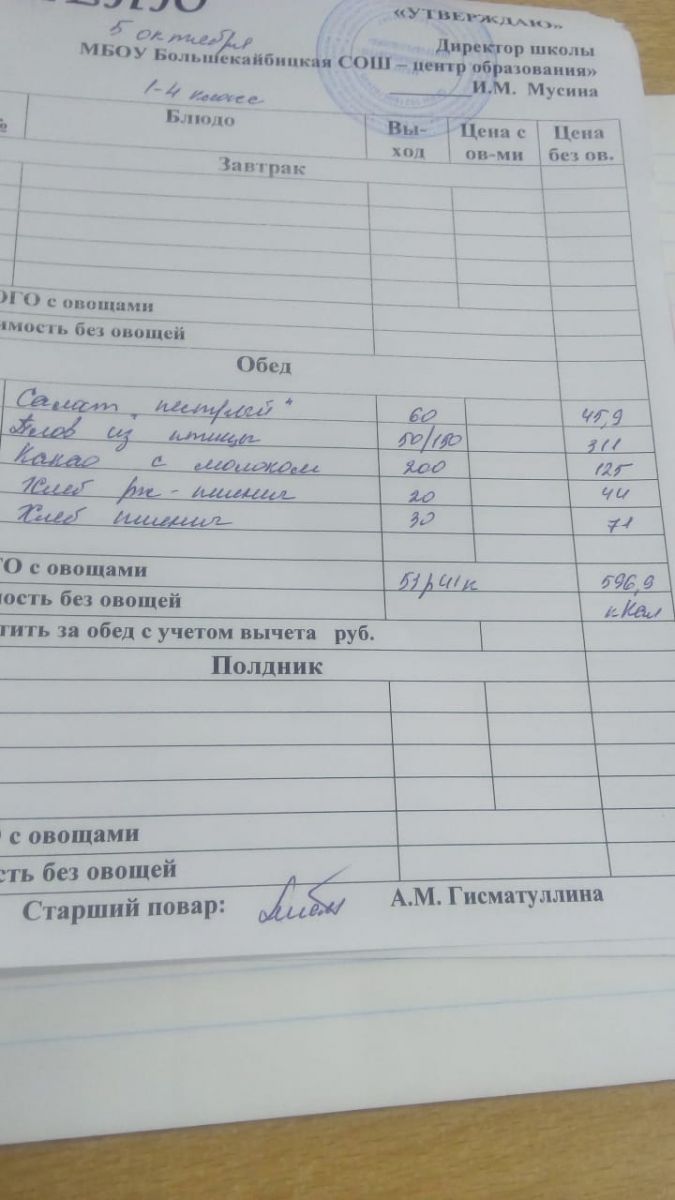 «УТВЕРЖДАЮ»
5 октября
Директор школы
МБОУ Большекайбицкая СОШ – центр образования»
И.М. Мусина
1-4 классе
№ Блюдо Вы-ход Цена с ов-ми Цена без ов.
Завтрак
ОГО с овощами
имость без овощей
Обед
Салат "пестрый" 60 45,9
Плов из птицы 50/150 311
Какао с молоком 200 125
Хлеб рж-пшенич 20 44
Хлеб пшенич 30 71
ГО с овощами 51р41к 596,9
ность без овощей кКал
тить за обед с учетом вычета руб.
Полдник
О с овощами
сть без овощей
Старший повар: А.М. Гисматуллина